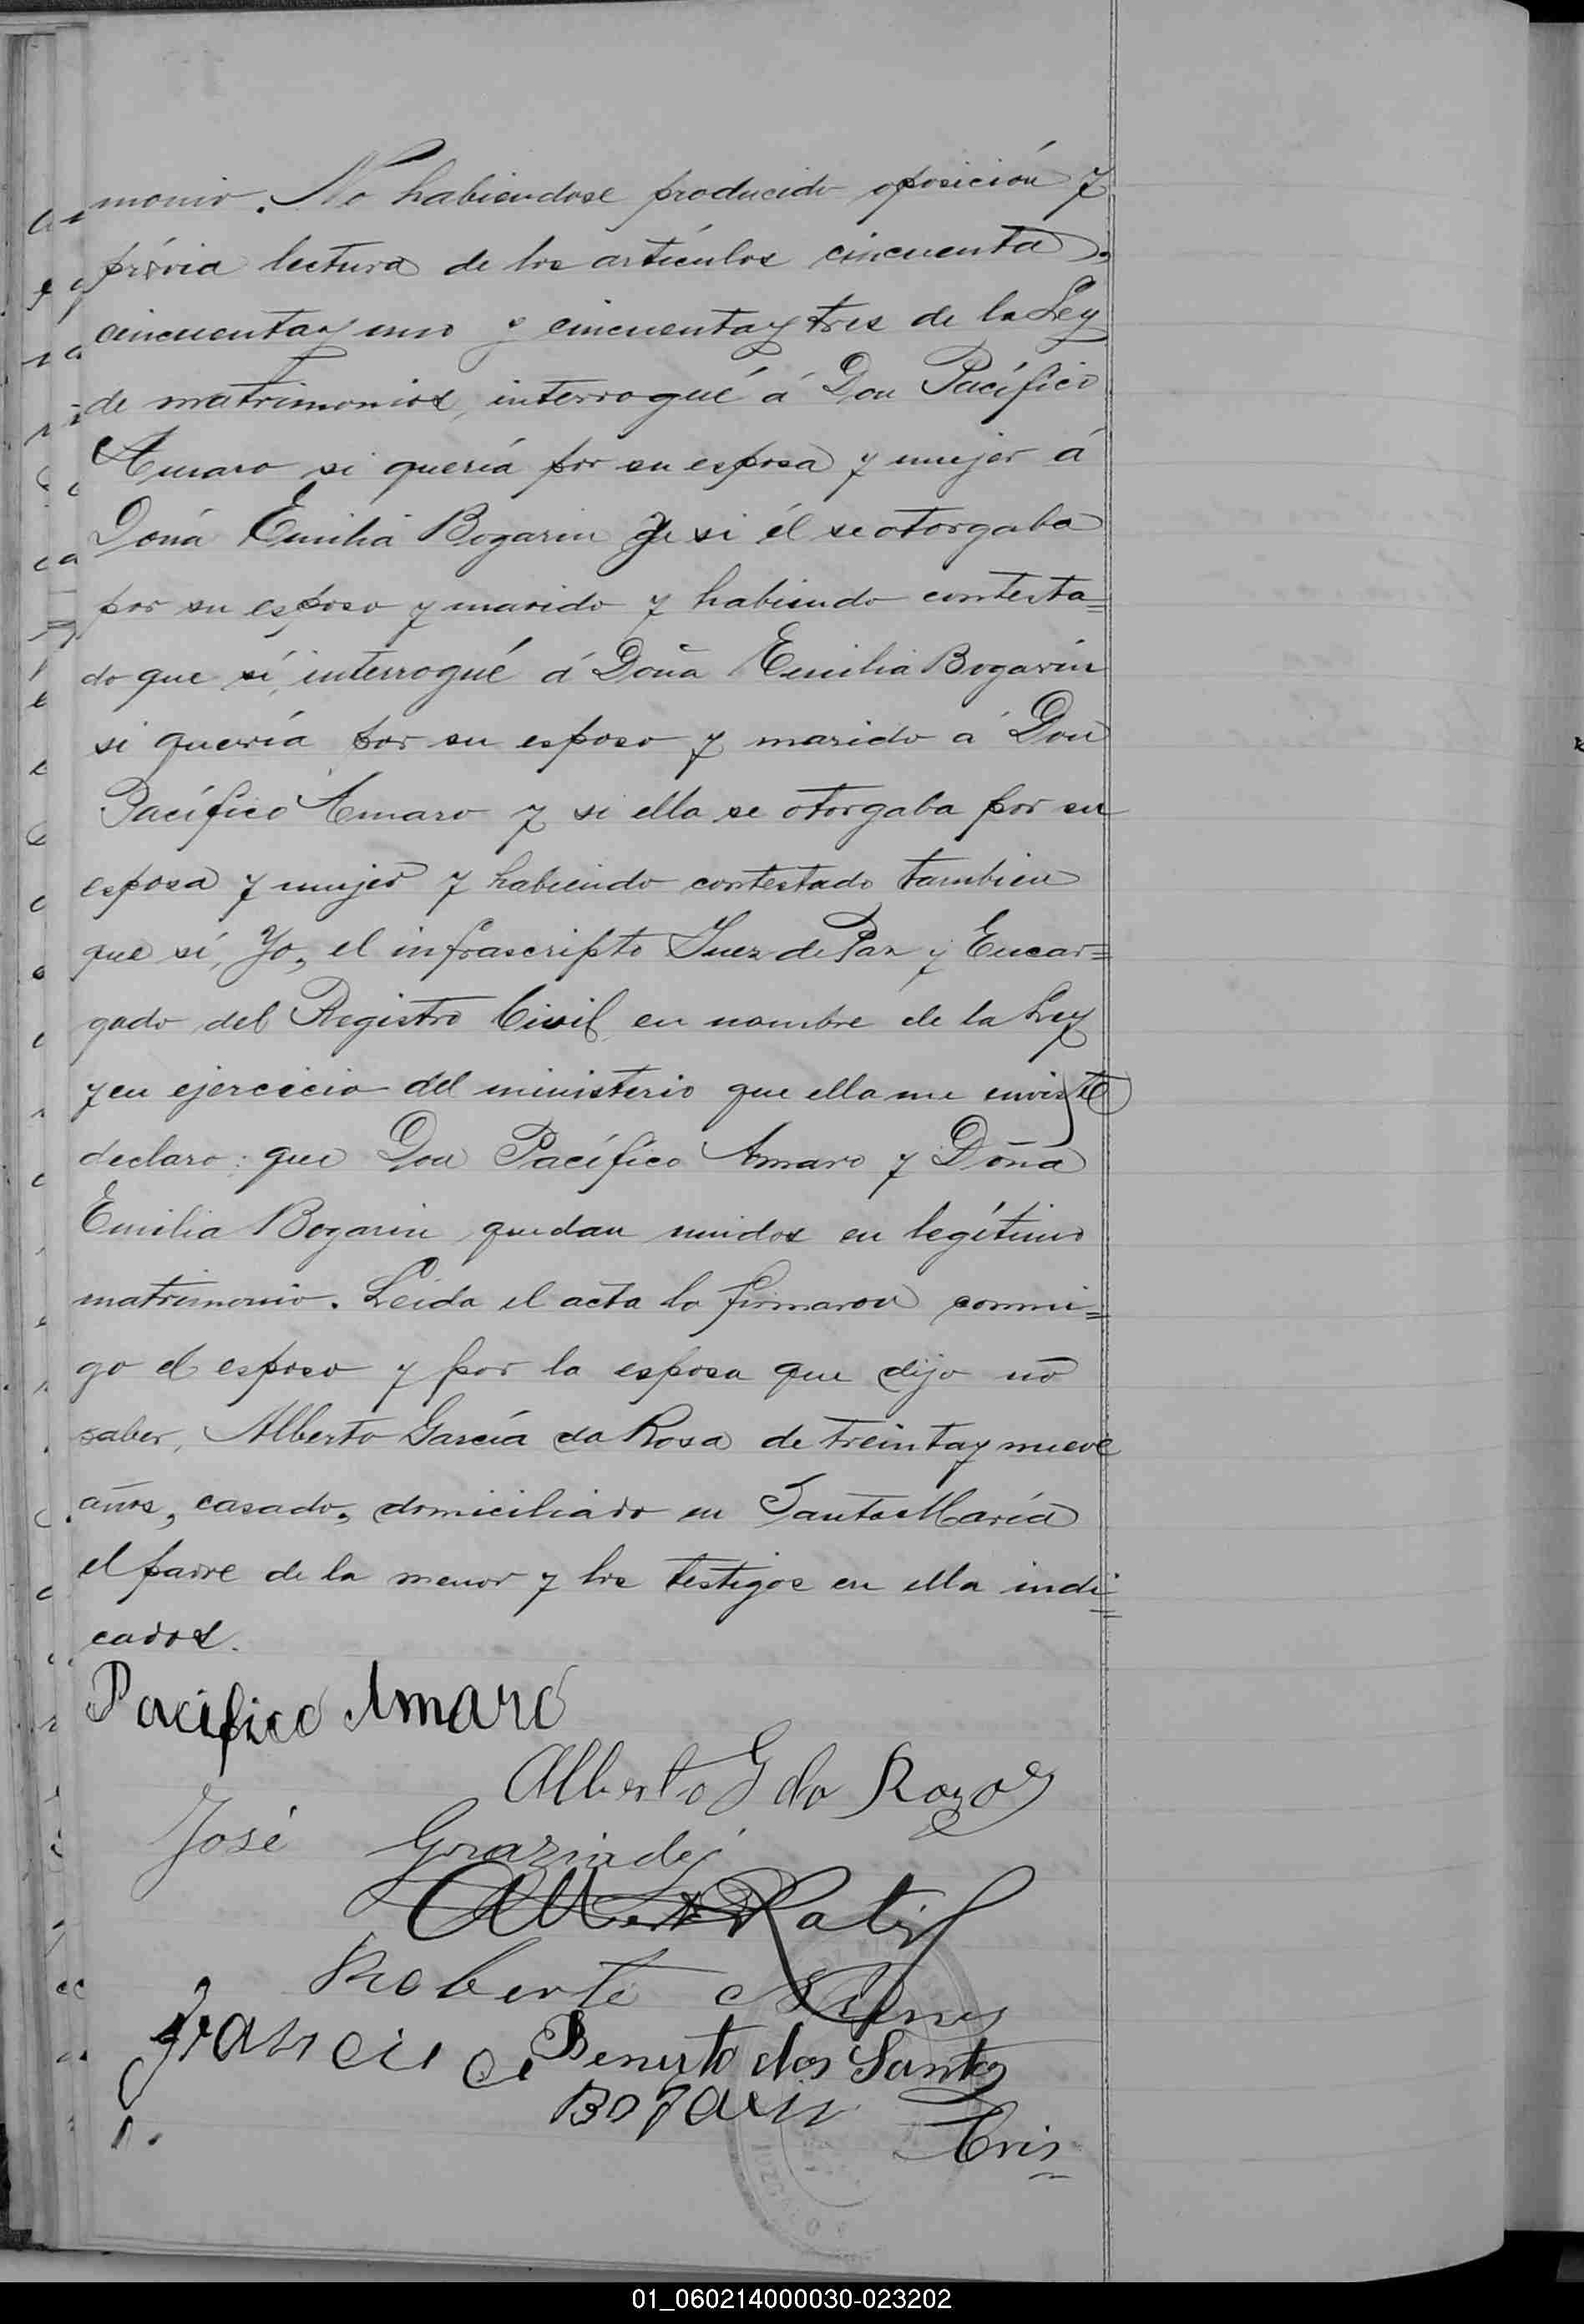 monio. No habiendose producido oposición y
prévia lectura de los artículos cincuenta,
cincuenta y uno y cincuenta y tres de la Ley
de matrimonios, interrogué á Don Pacífico
Amaro si quería por su esposa y mujer á
Doña Emilia Bogarin y si él se otorgaba
por su esposo y marido y habiendo contesta=
do que sí, interrogué á Doña Emilia Bogarín
si quería por su esposo y marido á Don
Pacífico Amaro y si ella se otorgaba por su
esposa y mujer y habiendo contestado tambien
que sí, Yo, el infrascripto Juez de Paz y Encar=
gado del Registro Civil, en nombre de la Ley
y en ejercicio del ministerio que ella me enviste
declaro: que Don Pacífico Amaro y Doña
Emilia Bogarin quedan unidos en legítimo
matrimonio. Leida el acta la firmaron conmi=
go el esposo y por la esposa que dijo no
saber, Alberto García da Rosa de treinta y nueve
años, casado, domiciliado en Santa María
el padre de la menor y los testigos en ella indi=
cados.
Pacifico Amaro
Alberto G da Roza
José
Roberto
Francisco Benito dos Santos
Bogarin
01_060214000030-023202